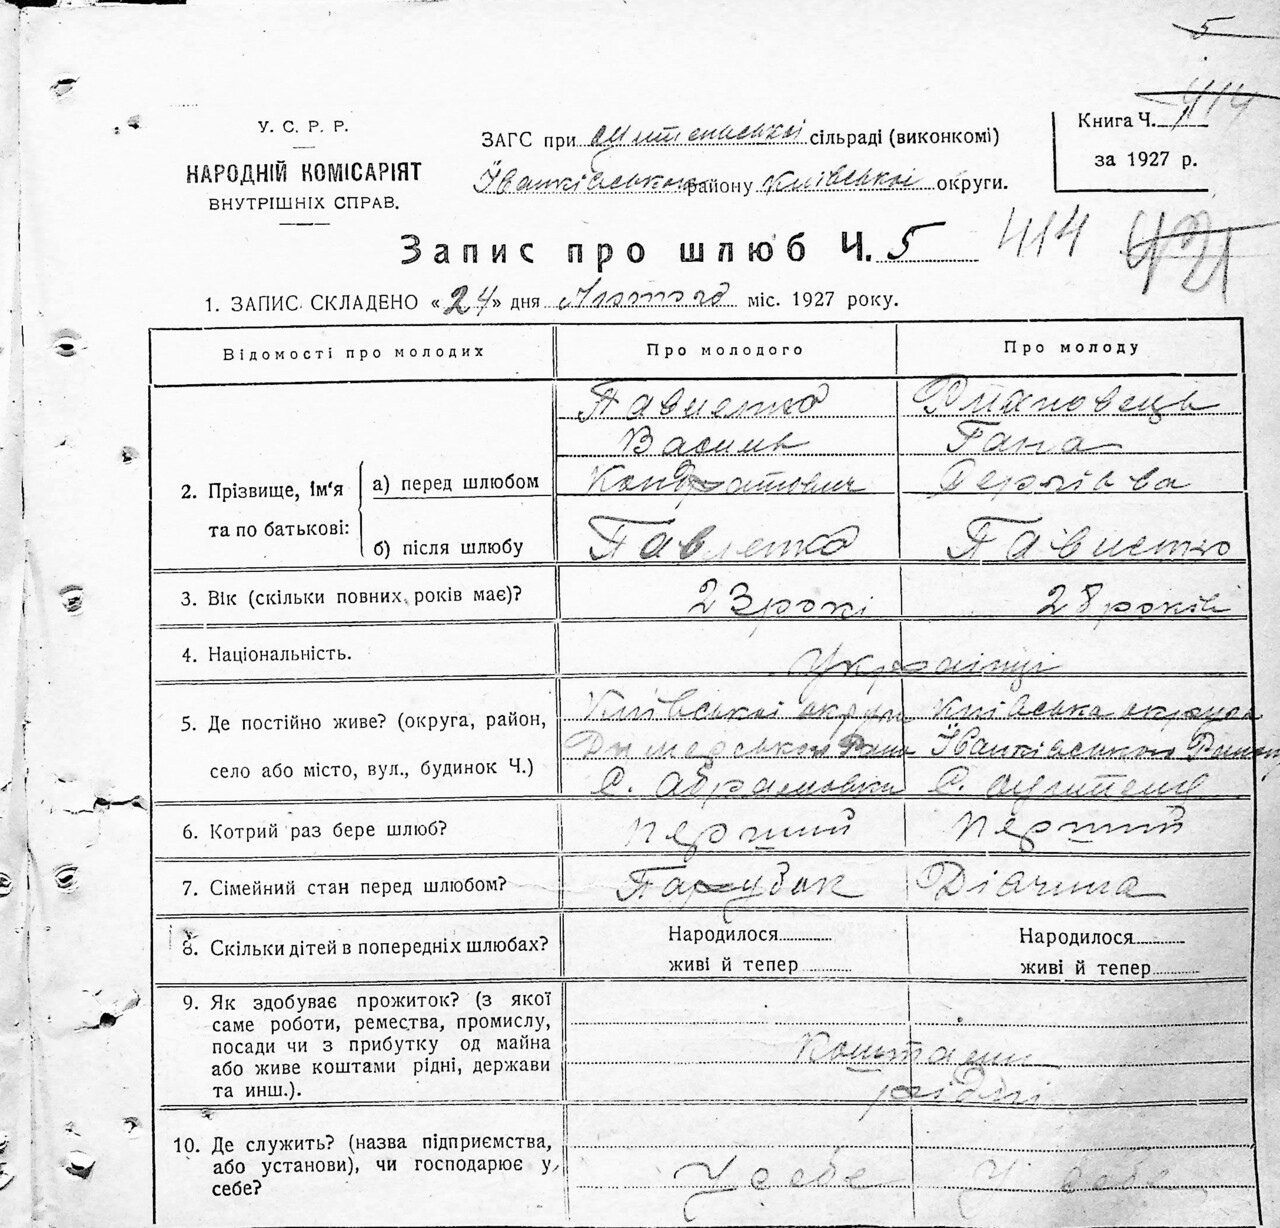 5
У. С. Р. Р.
НАРОДНІЙ КОМІСАРІЯТ
ВНУТРІШНІХ СПРАВ.
ЗАГС при сільраді (виконкомі)
Їванківського району Київської округи.
414
Книга Ч. 1
за 1927 р.
Запис про шлюб Ч. 5
414
421
1. ЗАПИС СКЛАДЕНО «24» дня Лютого міс. 1927 року.
Відомості про молодих
Про молодого
Про молоду
2. Прізвище, ім'я та по батькові:
а) перед шлюбом
Павленко
Василь
Кондратович
Гана
Сергіева
б) після шлюбу
Павленко
Павленко
3. Вік (скільки повних років має)?
23 рокі
28 років
4. Національність.
Українці
5. Де постійно живе? (округа, район,
село або місто, вул., будинок Ч.)
Київської округи
Димерського Рай
С. Абрамовки
Київська округа
Їванківського Району
С.
6. Котрий раз бере шлюб?
перший
перший
7. Сімейний стан перед шлюбом?
Парубок
Дівчина
8. Скільки дітей в попередніх шлюбах?
Народилося
живі й тепер
Народилося
живі й тепер
9. Як здобуває прожиток? (з якої
саме роботи, ремества, промислу,
посади чи з прибутку од майна
або живе коштами рідні, держави
та инш.).
Коштами
рідні
10. Де служить? (назва підприємства,
або установи), чи господарює у
себе?
У себе
У себе